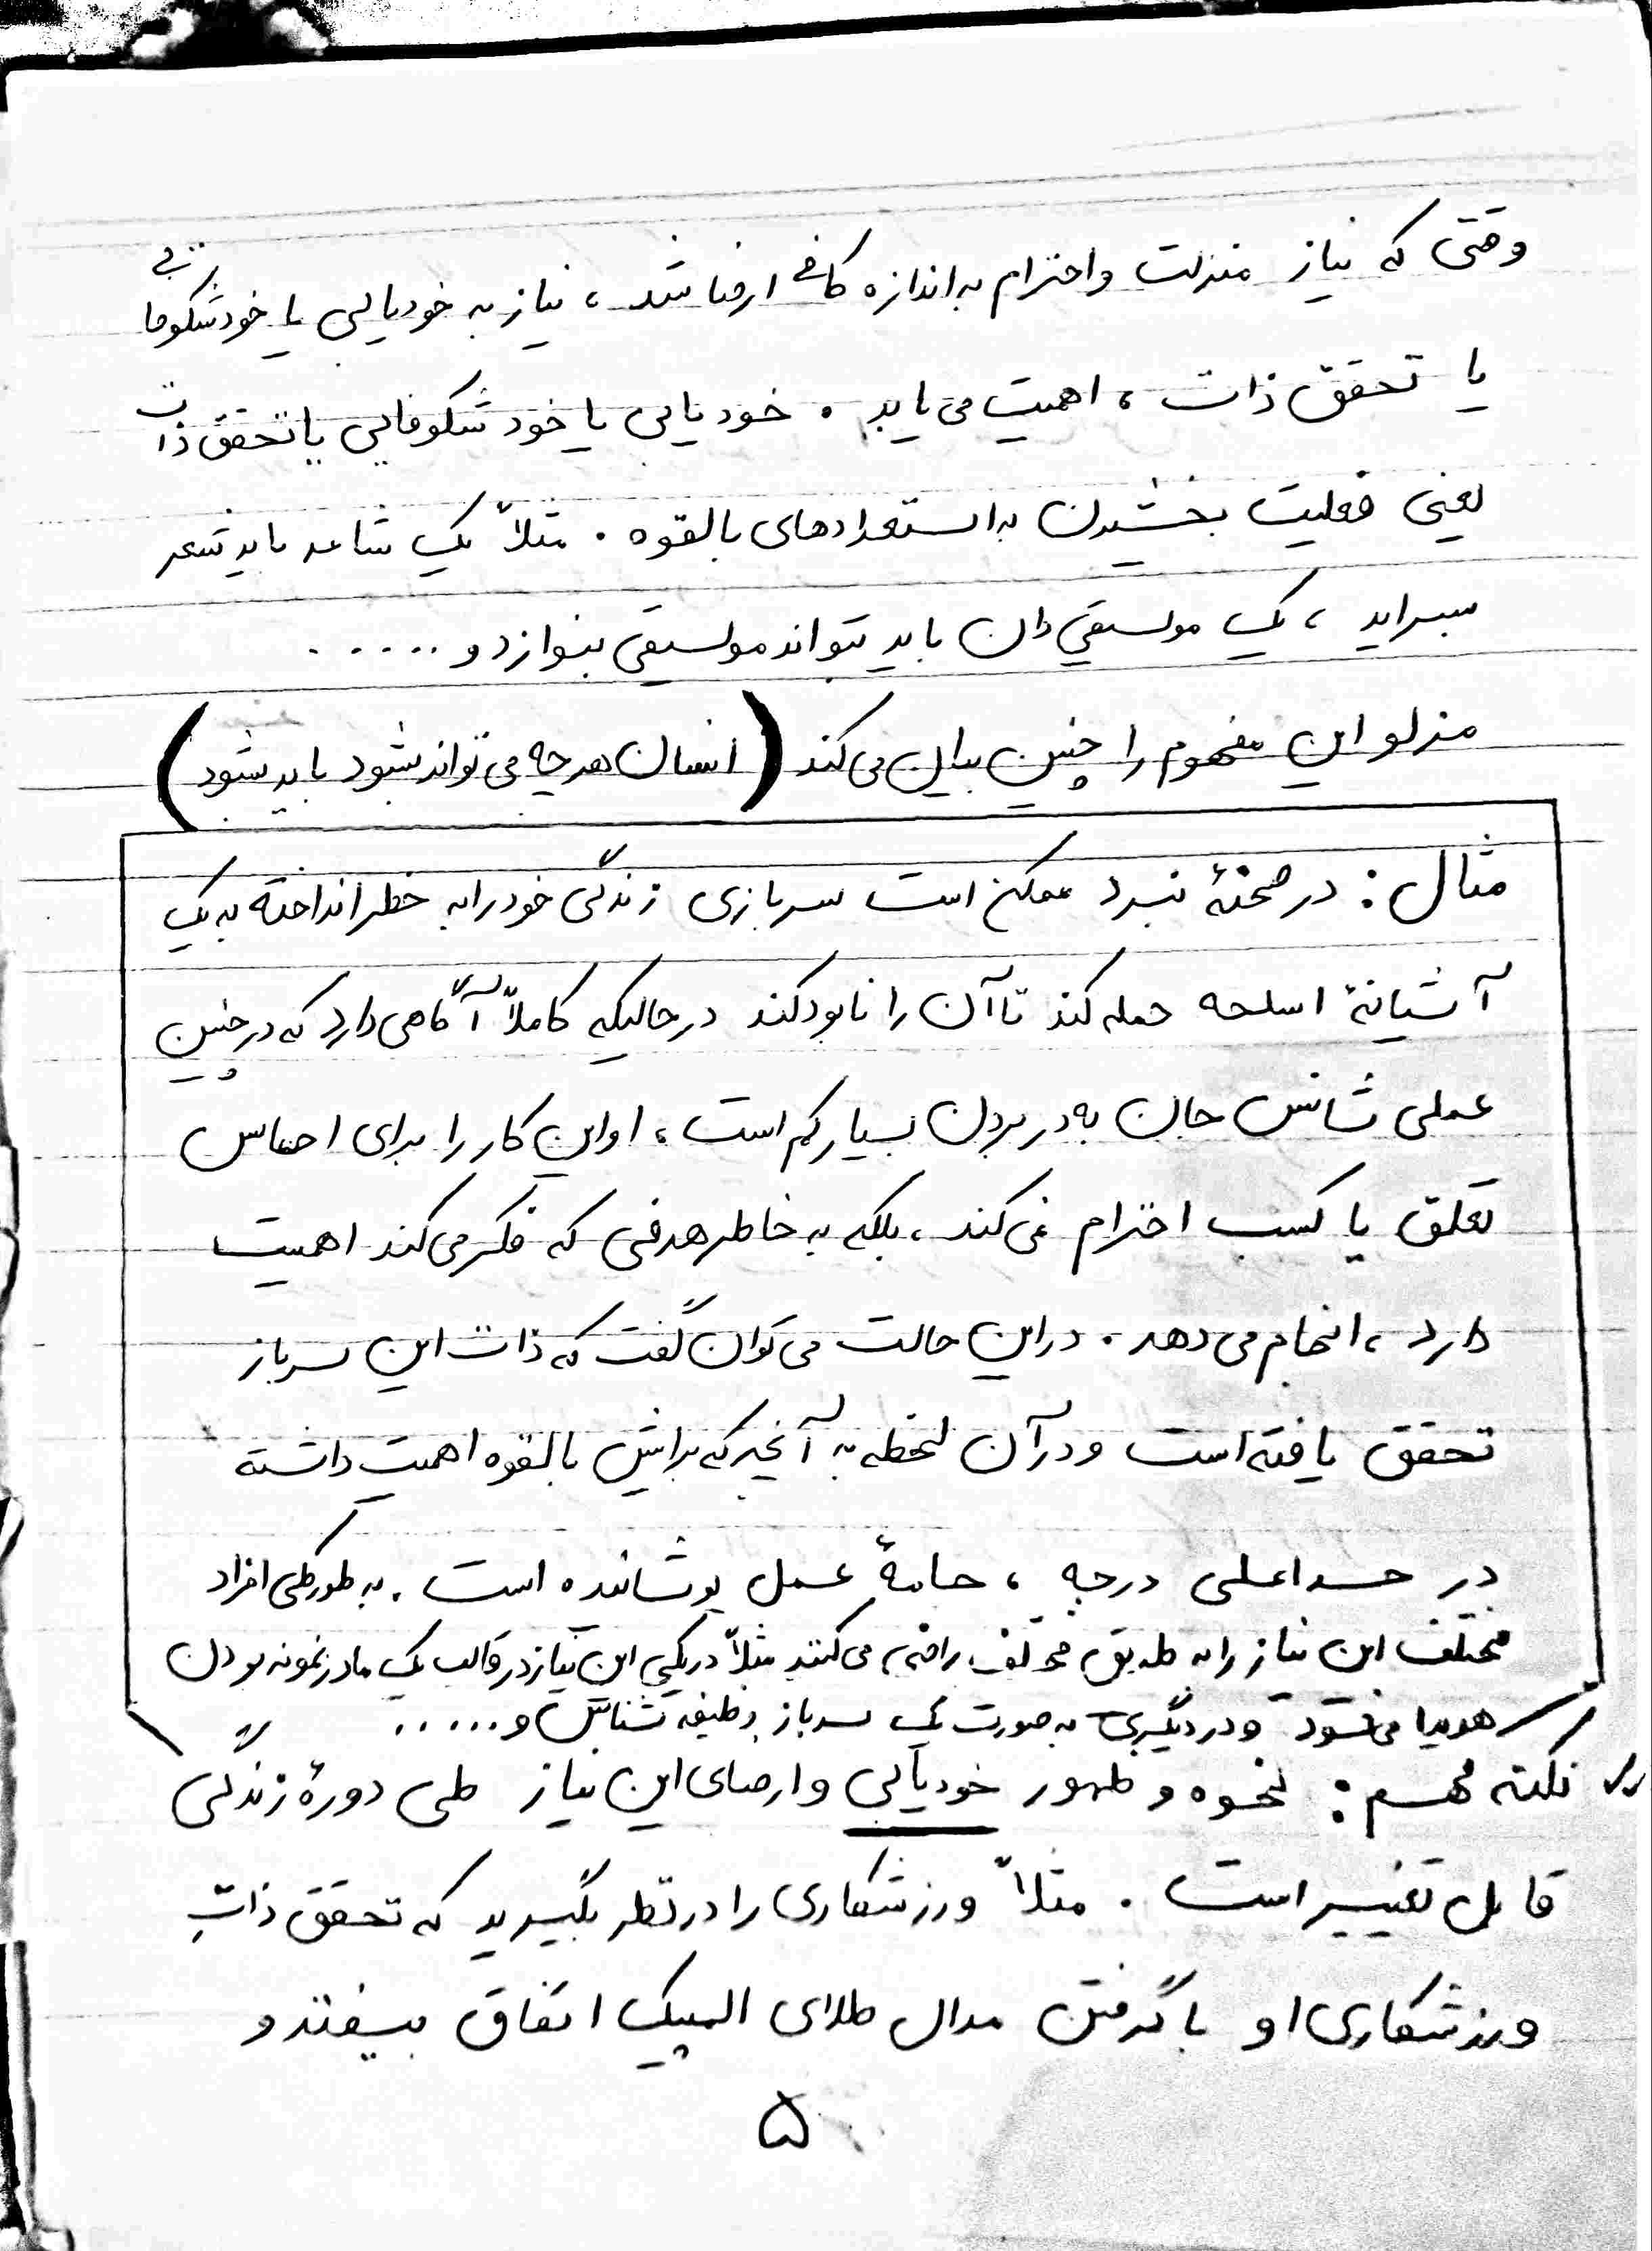 وقتی که نیاز منزلت و احترام به اندازه کافی ارضا شد ، نیاز به خودیابی یا خودشکوفایی
یا تحقق ذات ، اهمیت می یابد . خودیابی یا خود شکوفایی یا تحقق ذات
یعنی فعلیت بخشیدن به استعدادهای بالقوه . مثلاً یک شاعر باید شعر
بسراید ، یک موسیقی دان باید بتواند موسیقی بنوازد و .....
مزلو این مفهوم را چنین بیان می کند ( انسان هر چه می تواند بشود باید بشود )
مثال : در صحنهٔ نبرد ممکن است سربازی زندگی خود را به خطر انداخته به یک
آشیانهٔ اسلحه حمله کند تا آن را نابود کند در حالیکه کاملاً آگاهی دارد که در چنین
عملی شانس جان به در بردن بسیار کم است ، او این کار را برای احساس
تعلق یا کسب احترام نمی کند ، بلکه به خاطر هدفی که فکر می کند اهمیت
دارد ، انجام می دهد . در این حالت می توان گفت که ذات این سرباز
تحقق یافته است و در آن لحظه به آنچیز که برایش بالقوه اهمیت داشته
در حد اعلی درجه ، جامهٔ عمل پوشانده است . به طور کلی افراد
مختلف این نیاز را به طریق مختلف ارضاء می کنند مثلاً در یکی این نیاز در قالب یک مادر نمونه بودن
هویدا می شود و در دیگری به صورت یک سرباز وظیفه شناس و .....
نکته مهم : نحوه و ظهور خودیابی و ارضای این نیاز طی دورهٔ زندگی
قابل تغییر است . مثلاً ورزشکاری را در نظر بگیرید که تحقق ذاتِ
ورزشکاری او با گرفتن مدال طلای المپیک اتفاق بیفتد و
۵